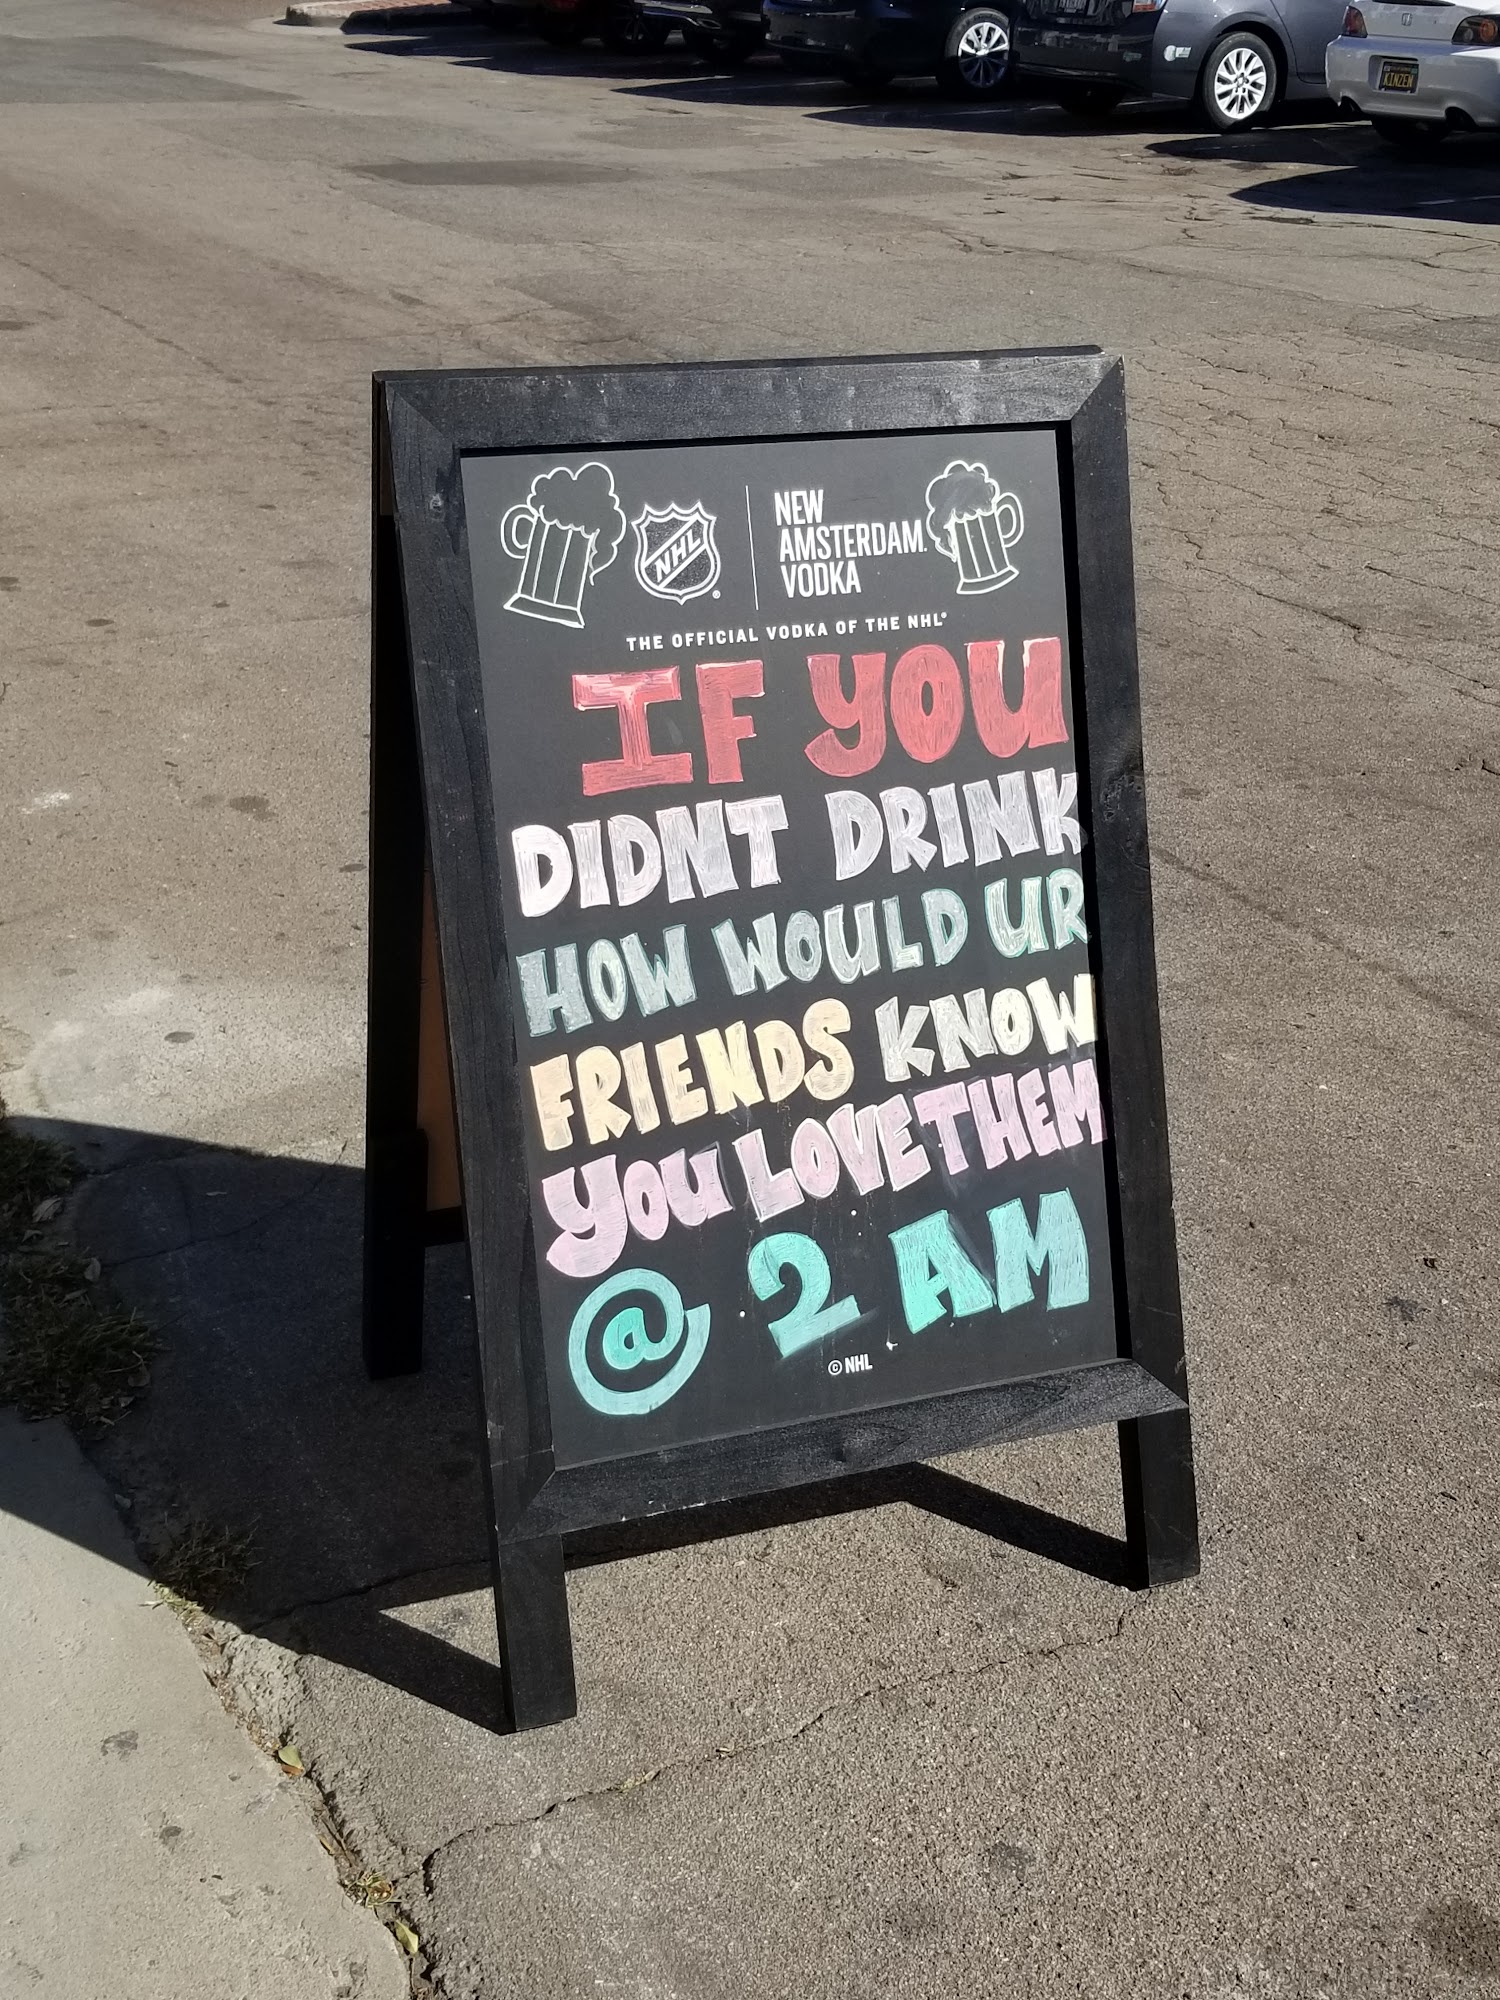 NHL
NEW
AMSTERDAM.
VODKA
THE OFFICIAL VODKA OF THE NHL®
IF YOU
DIDNT DRINK
HOW WOULD UR
FRIENDS KNOW
YOU LOVE THEM
@ 2 AM
© NHL
KINZEN